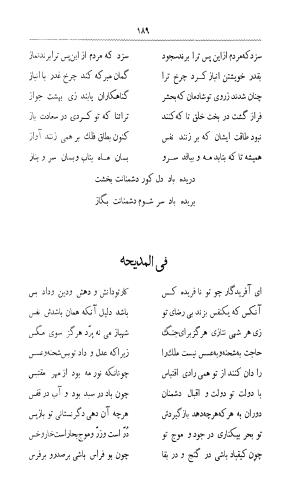 ۱۸۹
سزد که مردم از این پس ترا برند سجود سزد که مردم از این پس ترا برند نماز
بقدر خویشتن انباز کرد چرخ ترا گمان مبر که کند چرخ غدر با انباز
چنان شدند ز روی تو شادمان که بحشر گناهکاران یابند زی بهشت جواز
فراز گشت در بخت خلق تا که کنند ترا تنا که تو کردی در سعادت باز
نبود طاقت ایشان که بر زنند نفس کنون بطاق فلک بر همی زنند آواز
همیشه تا که بتابد مه و ببالد سرو بسان ماه بتاب و بسان سرو بناز
دریده باد دل کور دشمنانت بخشت
بریده باد سر شوم دشمنانت بگاز
فی المدیحه
ای آفریدگار چو تو نافریده کس کار تو دانش و دهش و دین و داد بس
آنکس که یکنفس بزند بی رضای تو باشد دلیل آنکه همان باشدش نفس
زی هر شهی نتازی هرگز برای جنگ شهباز می نه پرد هرگز سوی مگس
حاجت بشحنه و بعسس نیست ملک را زیرا که عدل و داد تو بس شحنه و عسس
را دان کنند از تو همی رادی اقتباس چونانکه نور مه بود از مهر مقتبس
با دولت تو دولت و اقبال دشمنان چون باد در سبد بود و آب در قفس
دوران به هر که هرچه دهد باز گیردش هرچه آن دهی دگر نستانی تو باز پس
تو بحر بیکناری در جود و موج تو در است و زر و موج بحار است خار و خس
چون کیقباد باشی در گنج و در بقا چون یو فراس باشی بر صدر و بر فرس